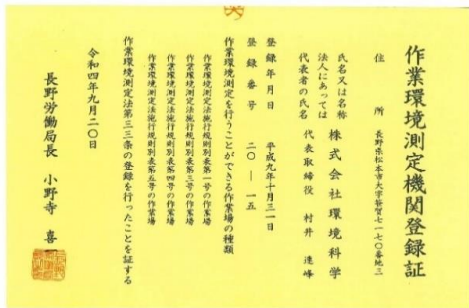 作業環境測定機関登録証
住所 長野県松本市大字笹賀七一七〇番地三
氏名又は名称 株式会社環境科学
法人にあっては
代表者の氏名 代表取締役 村井 逸峰
登録年月日 平成九年十月三一日
登録番号 二〇―一五
作業環境測定を行うことができる作業場の種類
作業環境測定法施行規則別表第一号の作業場
作業環境測定法施行規則別表第三号の作業場
作業環境測定法施行規則別表第四号の作業場
作業環境測定法施行規則別表第五号の作業場
作業環境測定法第三三条の登録を行ったことを証する
令和四年九月二〇日
長野労働局長 小野寺 喜一